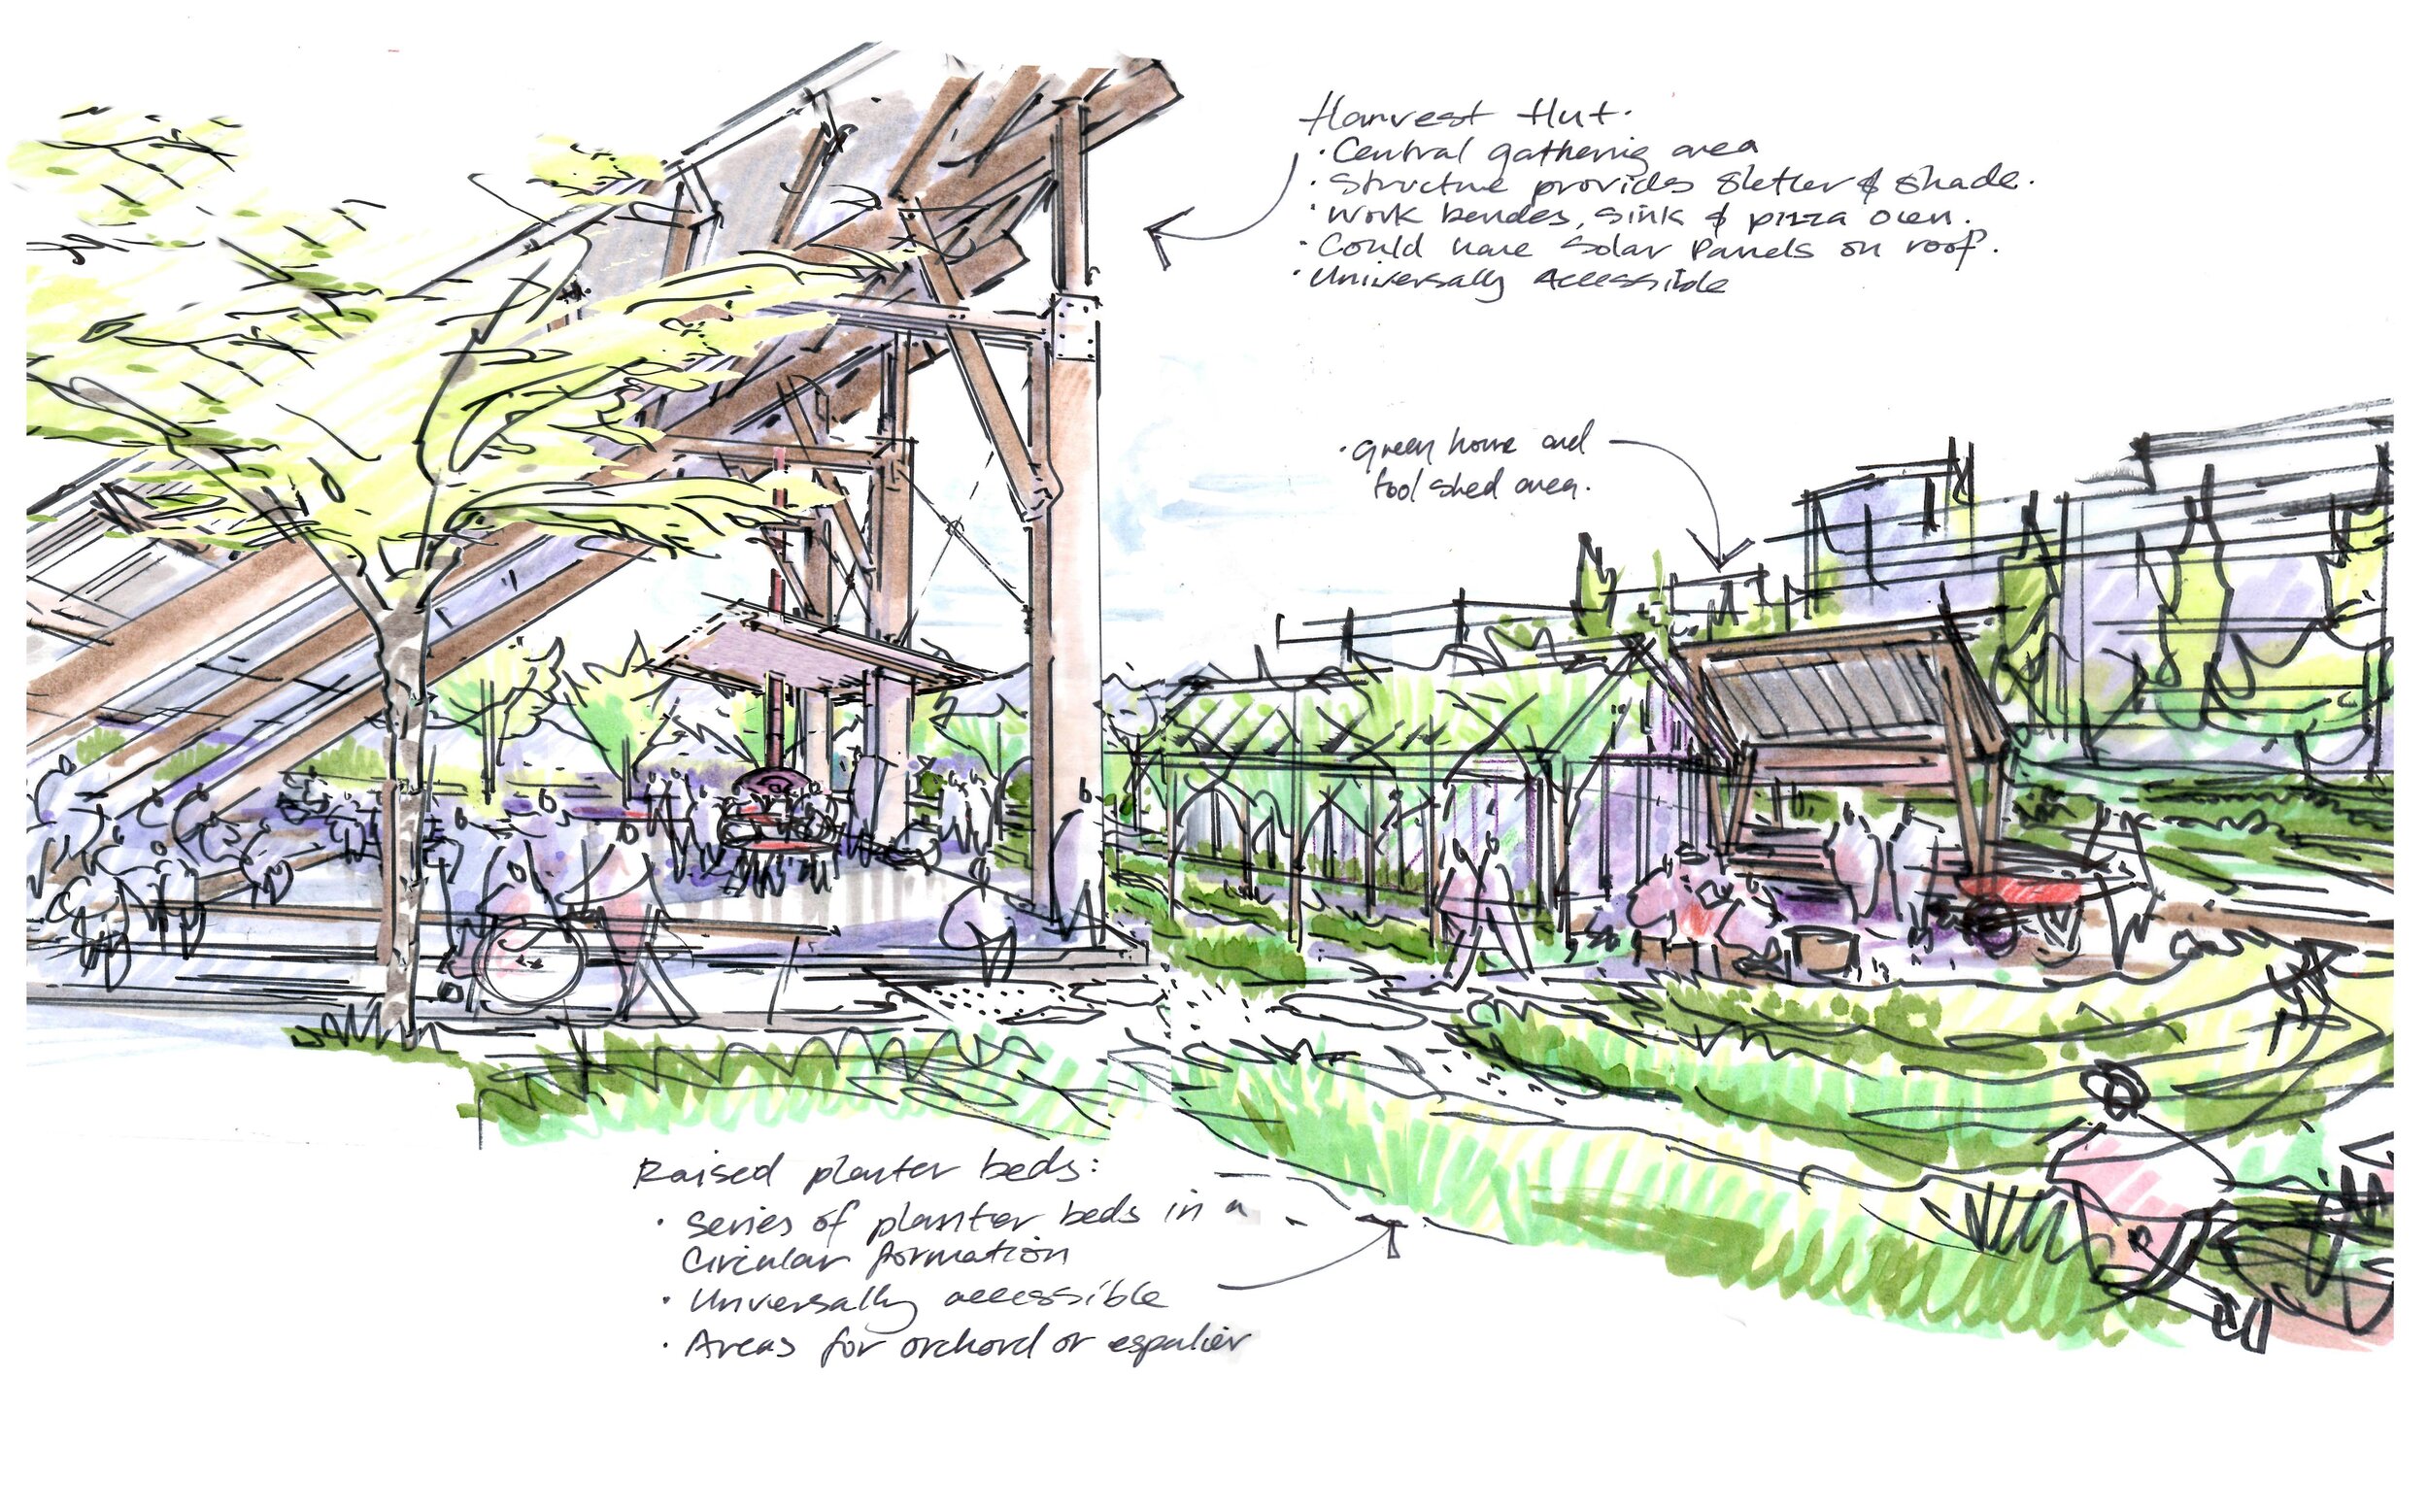 Harvest Hut.
· Central gathering area
· Structure provides shelter & shade.
· Work benches, sink & pizza oven.
· Could have Solar Panels on roof.
· Universally Accessible
· Green house and
tool shed area.
Raised planter beds:
· Series of planter beds in a
Circular formation
· Universally accessible
· Areas for orchard or espalier